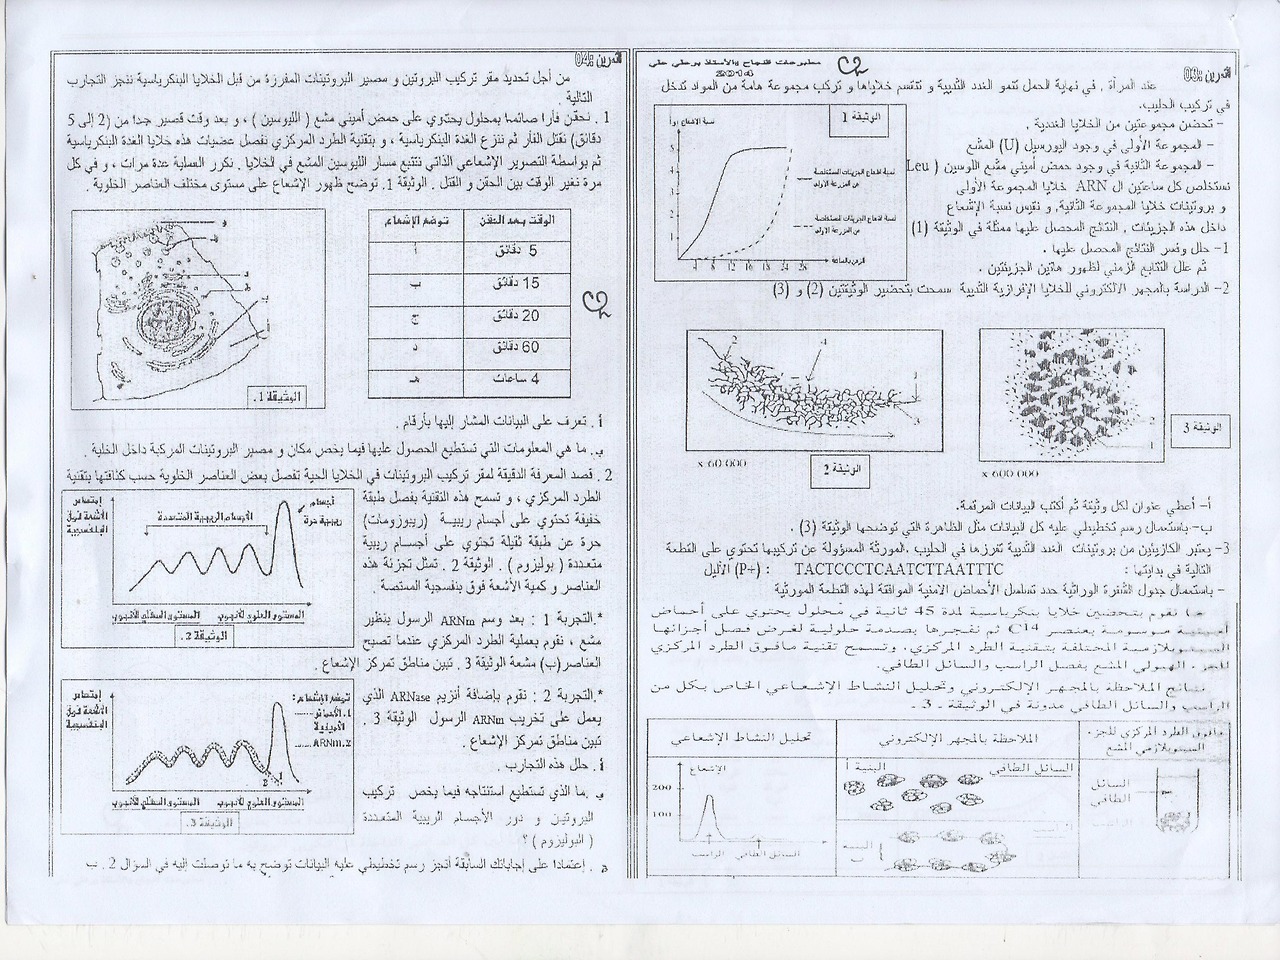 التمرين 03:
مطبوعات النجاح
2014
C2
عند المرأة , في نهاية الحمل تنمو الغدد الثديية و تنقسم خلاياها و تركب مجموعة هامة من المواد تدخل
في تركيب الحليب.
– تحضن مجموعتين من الخلايا الغدية ,
– المجموعة الأولى في وجود اليورسيل (U) المشع
– المجموعة الثانية في وجود حمض أميني مشع اللوسين ( Leu
نستخلص كل ساعتين ال ARN خلايا المجموعة الأولى
و بروتينات خلايا المجموعة الثانية, و نقيس نسبة الإشعاع
داخل هذه الجزيئات , النتائج المحصل عليها ممثلة في الوثيقة (1)
1– حلل وفسر النتائج المحصل عليها .
ثم علل التتابع الزمني لظهور هاتين الجزيئتين .
2– الدراسة بالمجهر الالكتروني للخلايا الإفرازية الثديية سمحت بتحضير الوثيقتين (2) و (3)
الوثيقة 1
5
4
3
2
1
4 8 12 16 18 24 28
الزمن بالساعة
2
4
1
3
الوثيقة 2
x 60 000
2
1
الوثيقة 3
x 600 000
أ– أعطي عنوان لكل وثيقة ثم أكتب البيانات المرقمة.
ب– باستعمال رسم تخطيطي عليه كل البيانات مثل الظاهرة التي توضحها الوثيقة (3) .
3– يعتبر الكازيئين من بروتينات الغدد الثديية تفرزها في الحليب ,المورثة المسؤولة عن تركيبها تحتوي على القطعة
التالية في بدايتها : TACTCCCTCAATCTTAATTTC : (P+) الأليل
– باستعمال جدول الشفرة الوراثية حدد تسلسل الأحماض الامنية الموافقة لهذه القطعة المورثية
نقوم بتحضين خلايا بنكرياسية لمدة 45 ثانية في محلول يحتوي على أحماض
موسومة بعنصر C14 ثم نفجرها بصدمة حلولية لغرض فصل أجزائها
المختلفة بتقنية الطرد المركزي. وتسمح تقنية مافوق الطرد المركزي
الهيولي المشع بفصل الراسب والسائل الطافي.
نتائج الملاحظة بالمجهر الإلكتروني وتحليل النشاط الإشعاعي الخاص بكل من
الراسب والسائل الطافي مدونة في الوثيقة - 3 -
الطرد المركزي للجزء
السيتوبلازمي المشع
الملاحظة بالمجهر الإلكتروني
تحليل النشاط الإشعاعي
السائل
الطافي
السائل الطافي
البنية أ
الراسب
البنية
الإشعاع
200
100
الراسب
السائل الطافي
التمرين 04:
من أجل تحديد مقر تركيب البروتين و مصير البروتينات المفرزة من قبل الخلايا البنكرياسية ننجز التجارب
التالية
1 . نحقن فأرا صائما بمحلول يحتوي على حمض أميني مشع ( الليوسين ) ، و بعد وقت قصير جدا من (2 إلى 5
دقائق) نقتل الفأر ثم ننزع الغدة البنكرياسية ، و بتقنية الطرد المركزي نفصل عضيات هذه خلايا الغدة البنكرياسية
ثم بواسطة التصوير الإشعاعي الذاتي نتتبع مسار الليوسين المشع في الخلايا . نكرر العملية عدة مرات ، و في كل
مرة نغير الوقت بين الحقن و القتل . الوثيقة 1. توضح ظهور الإشعاع على مستوى مختلف العناصر الخلوية .
الوقت بعد الحقن
توضع الإشعاع
5 دقائق
أ
15 دقائق
ب
20 دقائق
ج
60 دقائق
د
4 ساعات
هـ
الوثيقة 1.
C2
أ . تعرف على البيانات المشار إليها بأرقام .
ب. ما هي المعلومات التي تستطيع الحصول عليها فيما يخص مكان و مصير البروتينات المركبة داخل الخلية .
2 . قصد المعرفة الدقيقة لمقر تركيب البروتينات في الخلايا الحية تفصل بعض العناصر الخلوية حسب كثافتها بتقنية
الطرد المركزي ، و تسمح هذه التقنية بفصل طبقة
خفيفة تحتوي على أجسام ريبية (ريبوزومات)
حرة عن طبقة ثقيلة تحتوي على أجسام ريبية
متعددة ( بوليزوم ) . الوثيقة 2 . تمثل تجزئة هذه
العناصر و كمية الأشعة فوق بنفسجية الممتصة .
إمتصاص
الأشعة فوق
البنفسجية
الأجسام الريبية المتعددة
أجسام
ريبية حرة
المستوى العلوي للأنبوب
المستوى السفلي للأنبوب
الوثيقة 2.
*.التجربة 1 : بعد وسم ARNm الرسول بنظير
مشع ، نقوم بعملية الطرد المركزي عندما تصبح
العناصر(ب) مشعة الوثيقة 3 . تبين مناطق تمركز الإشعاع .
*.التجربة 2 : نقوم بإضافة أنزيم ARNase الذي
يعمل على تخريب ARNm الرسول الوثيقة 3 .
تبين مناطق تمركز الإشعاع .
أ . حلل هذه التجارب .
ب .ما الذي تستطيع استنتاجه فيما يخص تركيب
البروتين و دور الأجسام الريبية المتعددة
( البوليزوم ) ؟
إمتصاص
الأشعة فوق
البنفسجية
توضع الإشعاع :
1. الأحماض
الأمينية
2.ARNm
المستوى العلوي للأنبوب
المستوى السفلي للأنبوب
الوثيقة 3.
ج . إعتمادا على إجاباتك السابقة أنجز رسم تخطيطي عليه البيانات توضح به ما توصلت إليه في السؤال 2 . ب